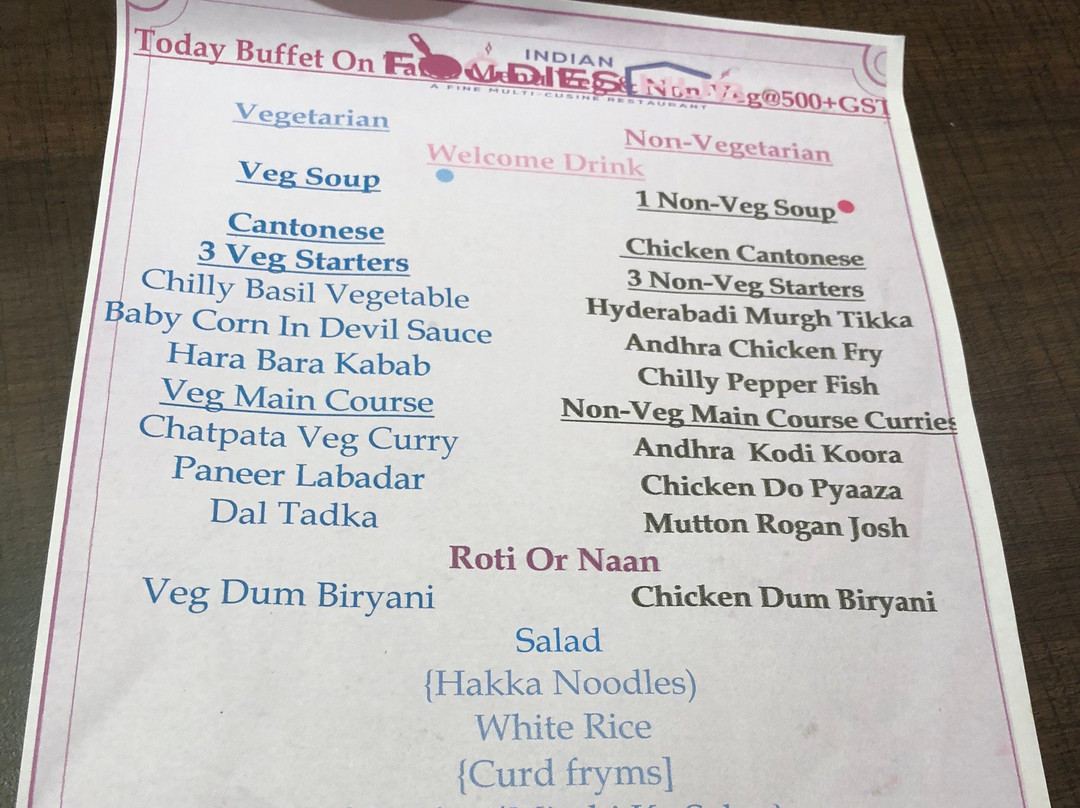 Today Buffet On
INDIAN
FOODIES
Non Veg@500+GST
A FINE MULTI-CUSINE RESTAURANT
Vegetarian
Non-Vegetarian
Welcome Drink
Veg Soup
1 Non-Veg Soup
Cantonese
Chicken Cantonese
3 Veg Starters
3 Non-Veg Starters
Chilly Basil Vegetable
Hyderabadi Murgh Tikka
Baby Corn In Devil Sauce
Andhra Chicken Fry
Hara Bara Kabab
Chilly Pepper Fish
Veg Main Course
Non-Veg Main Course Curries
Chatpata Veg Curry
Andhra Kodi Koora
Paneer Labadar
Chicken Do Pyaaza
Dal Tadka
Mutton Rogan Josh
Roti Or Naan
Veg Dum Biryani
Chicken Dum Biryani
Salad
{Hakka Noodles)
White Rice
{Curd fryms]